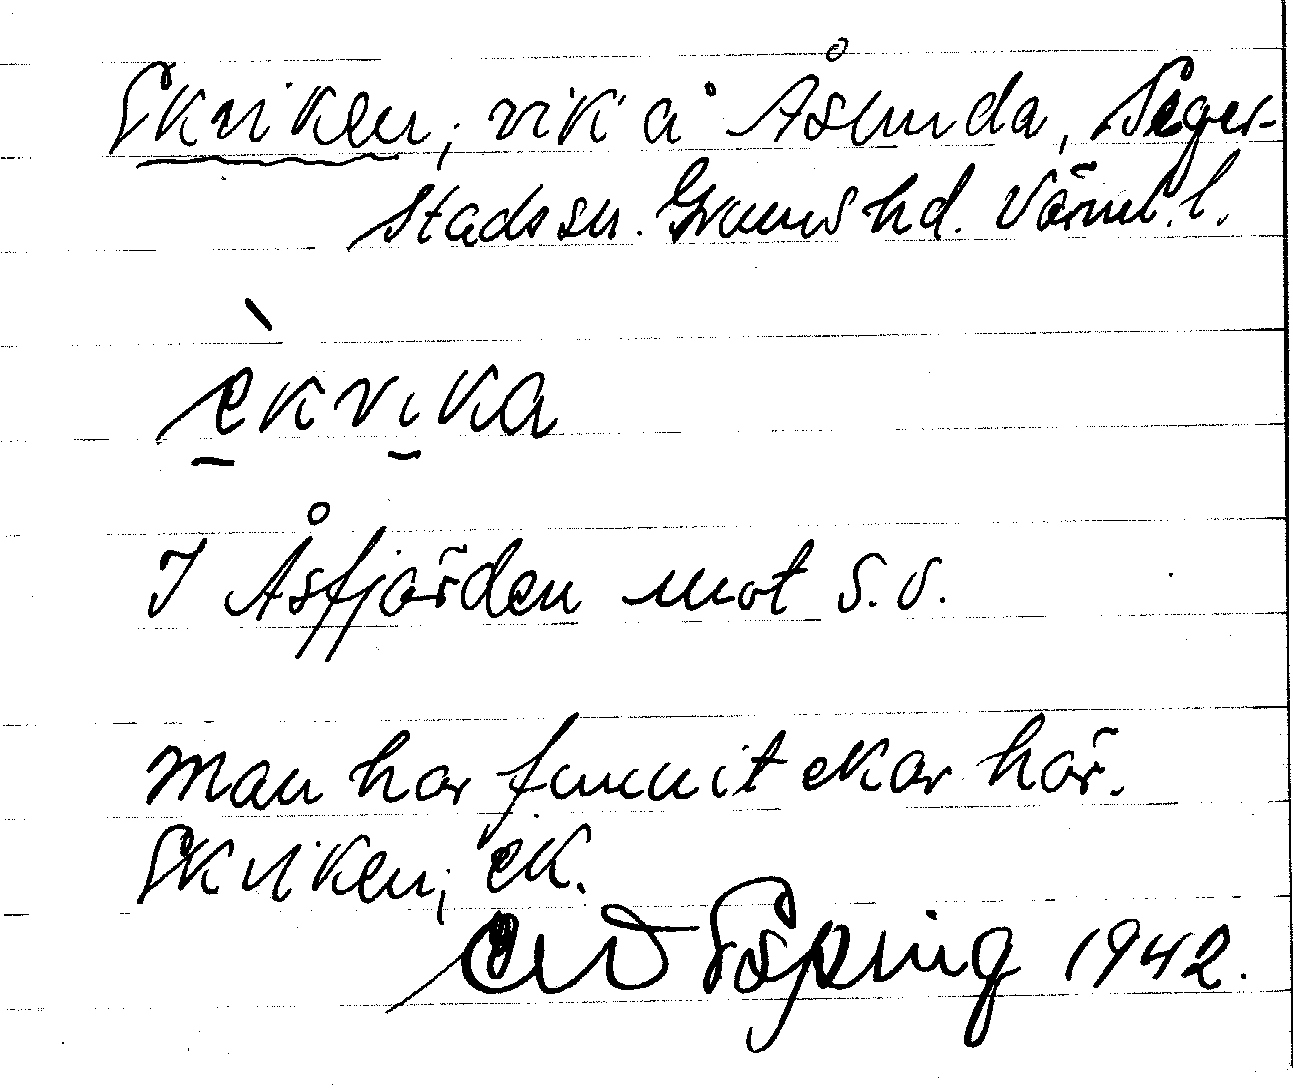 Ekviken, vik å Åsunda, Seger-
stads sn. Grums hd. Värml. l.
èkvika
I Åsfjärden mot S.V.
Man har funnit ekar här.
Ekviken; ek.
1942.